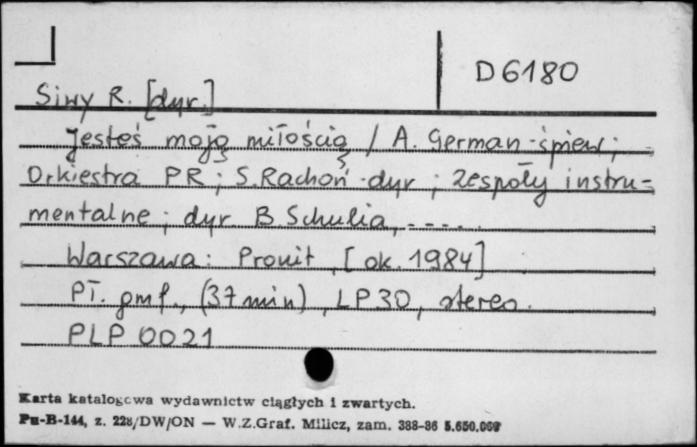 D 6180
Siwy R. [dyr.]
Jesteś moją miłością / A. German - śpiew ;
Orkiestra PR ; S. Rachoń - dyr ; Zespoły instru=
mentalne ; dyr. B. Schulia, - - - - .
Warszawa : Pronit , [ok. 1984]
Pł. gmf., (37 min) , LP 30 , stereo.
PLP 0021
Karta katalogowa wydawnictw ciągłych i zwartych.
Pu-B-144, z. 228/DW/ON — W.Z.Graf. Milicz, zam. 388-86 5.650.000